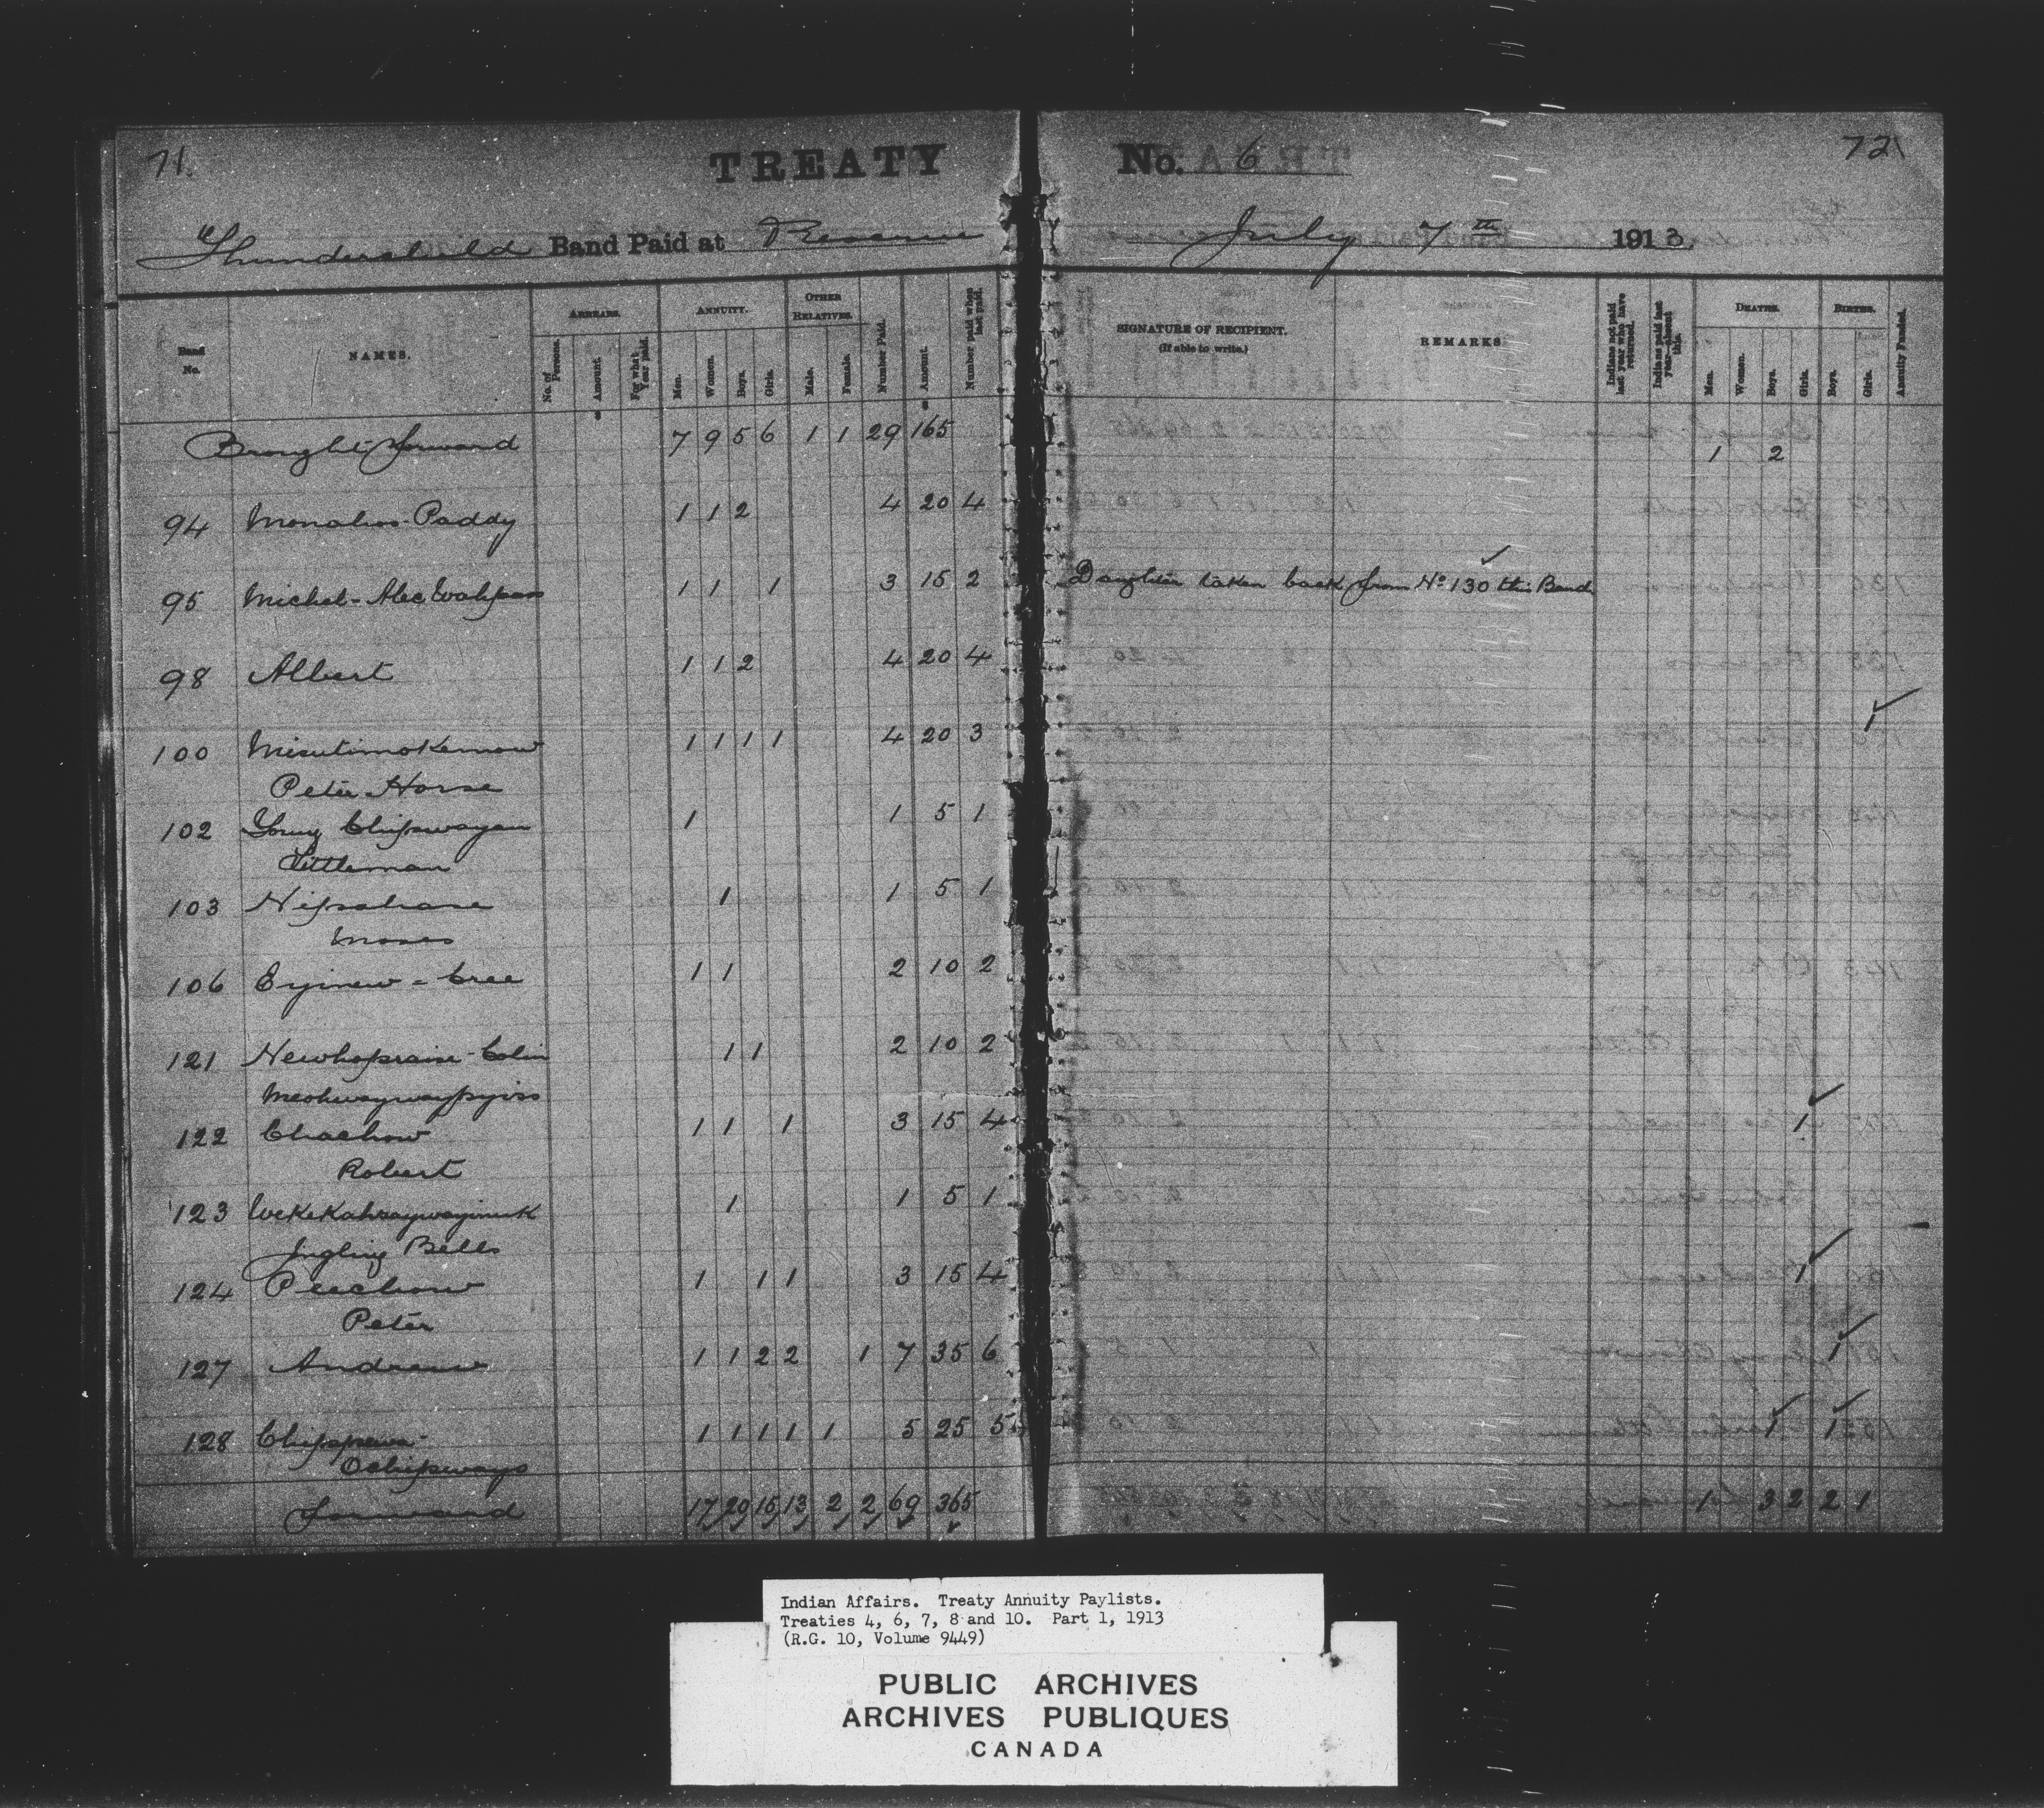 71.
TREATY No. 6
72
Thunderchild Band Paid at Reserve July 7th 1913
Band No.
NAMES.
ARREARS.
No. of Persons.
Amount.
For what Year paid.
ANNUITY.
Men.
Women.
Boys.
Girls.
OTHER RELATIVES.
Male.
Female.
Number Paid.
Amount.
Number paid when last paid.
SIGNATURE OF RECIPIENT.
(If able to write.)
REMARKS
Indians not paid last year who have returned.
Indians paid last year—absent this.
DEATHS.
Men.
Women.
Boys.
Girls.
BIRTHS.
Boys.
Girls.
Annuity Funded.
Brought forward 7 9 5 6 1 1 29 165 1 2
94 Paddy 1 1 2 4 20 4
95 Michel - Alec 1 1 1 3 15 2 Daughter taken back from No 130 this Band
98 Albert 1 1 2 4 20 4
100 Misutimokemow 1 1 1 1 4 20 3 1
Peter Horse
102 Young Chipwayan 1 1 5 1
Littleman
103 1 1 5 1
Moses
106 Eyinew - Cree 1 1 2 10 2
121 Colin 1 1 2 10 2
122 Chachow 1 1 1 3 15 4 1
Robert
123 1 1 5 1
Jngling Bells
124 Peechow 1 1 1 3 15 4 1
Peter
127 Andrew 1 1 2 2 1 7 35 6 1
128 1 1 1 1 1 5 25 5 1 1
Ochipways
Forward 17 20 15 13 2 2 69 365 1 3 2 2 1
Indian Affairs. Treaty Annuity Paylists.
Treaties 4, 6, 7, 8 and 10. Part 1, 1913
(R.G. 10, Volume 9449)
PUBLIC ARCHIVES
ARCHIVES PUBLIQUES
CANADA